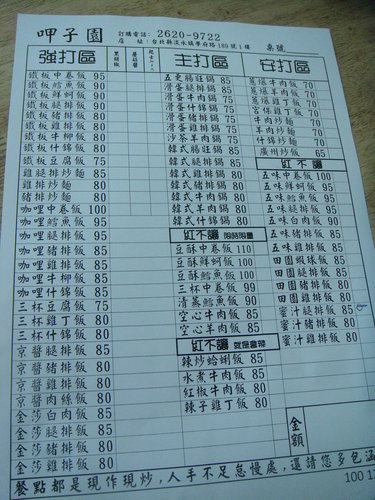 呷子園
訂購電話: 2620-9722
店 址:台北縣淡水鎮學府路189號1樓
桌號
強打區
黑胡椒
蘑菇醬
主打區
安打區
鐵板中卷飯 95
鐵板鱈魚飯 95
鐵板鮮蚵飯 90
鐵板豬排飯 80
鐵板雞排飯 80
鐵板牛柳飯 80
鐵板什錦飯 80
鐵板豆腐飯 75
雞腿排炒麵 85
雞排炒麵 80
豬排炒麵 80
咖哩中卷飯 100
咖哩鱈魚飯 95
咖哩腿排飯 90
咖哩豬排飯 85
咖哩雞排飯 85
咖哩牛柳飯 85
咖哩什錦飯 85
三杯豆腐飯 75
三杯雞丁飯 80
三杯什錦飯 80
京醬腿排飯 85
京醬豬排飯 80
京醬雞排飯 80
京醬肉絲飯 80
金莎白肉飯 85
金莎腿排飯 85
金莎豬排飯 80
金莎雞排飯 80
五更腸旺鍋 85
滑蛋腿排鍋 85
滑蛋牛肉鍋 75
滑蛋豬排鍋 75
滑蛋雞排鍋 75
沙茶羊肉鍋 75
韓式腸旺鍋 85
韓式腿排鍋 85
韓式雞排鍋 80
韓式豬排鍋 80
韓式牛肉鍋 80
韓式羊肉鍋 80
韓式什錦鍋 80
紅不讓 限時限量
豆酥中卷飯 110
豆酥鮮蚵飯 100
豆酥鱈魚飯 100
三杯中卷飯 99
清蒸鱈魚飯 90
空心牛肉飯 80
空心羊肉飯 80
紅不讓 就是會辣
辣炒蛤蜊飯 85
水煮牛肉飯 80
紅椒牛肉飯 80
辣子雞丁飯 80
蔥爆牛肉飯 70
蔥爆羊肉飯 70
蔥爆雞丁飯 70
宮保雞丁飯 70
牛肉炒麵 70
羊肉炒麵 70
什錦炒麵 70
廣州炒飯 65
紅不讓
五味中卷飯 100
五味鮮蚵飯 95
五味鱈魚飯 95
五味腿排飯 90
五味白肉飯 90
五味豬排飯 85
五味雞排飯 85
田園蝦球飯 85
田園腿排飯 85
田園豬排飯 80
田園雞排飯 80
蜜汁腿排飯 85
蜜汁豬排飯 80
蜜汁雞排飯 80
金額
餐點都是現作現炒,人手不足怠慢處,還請您多包涵